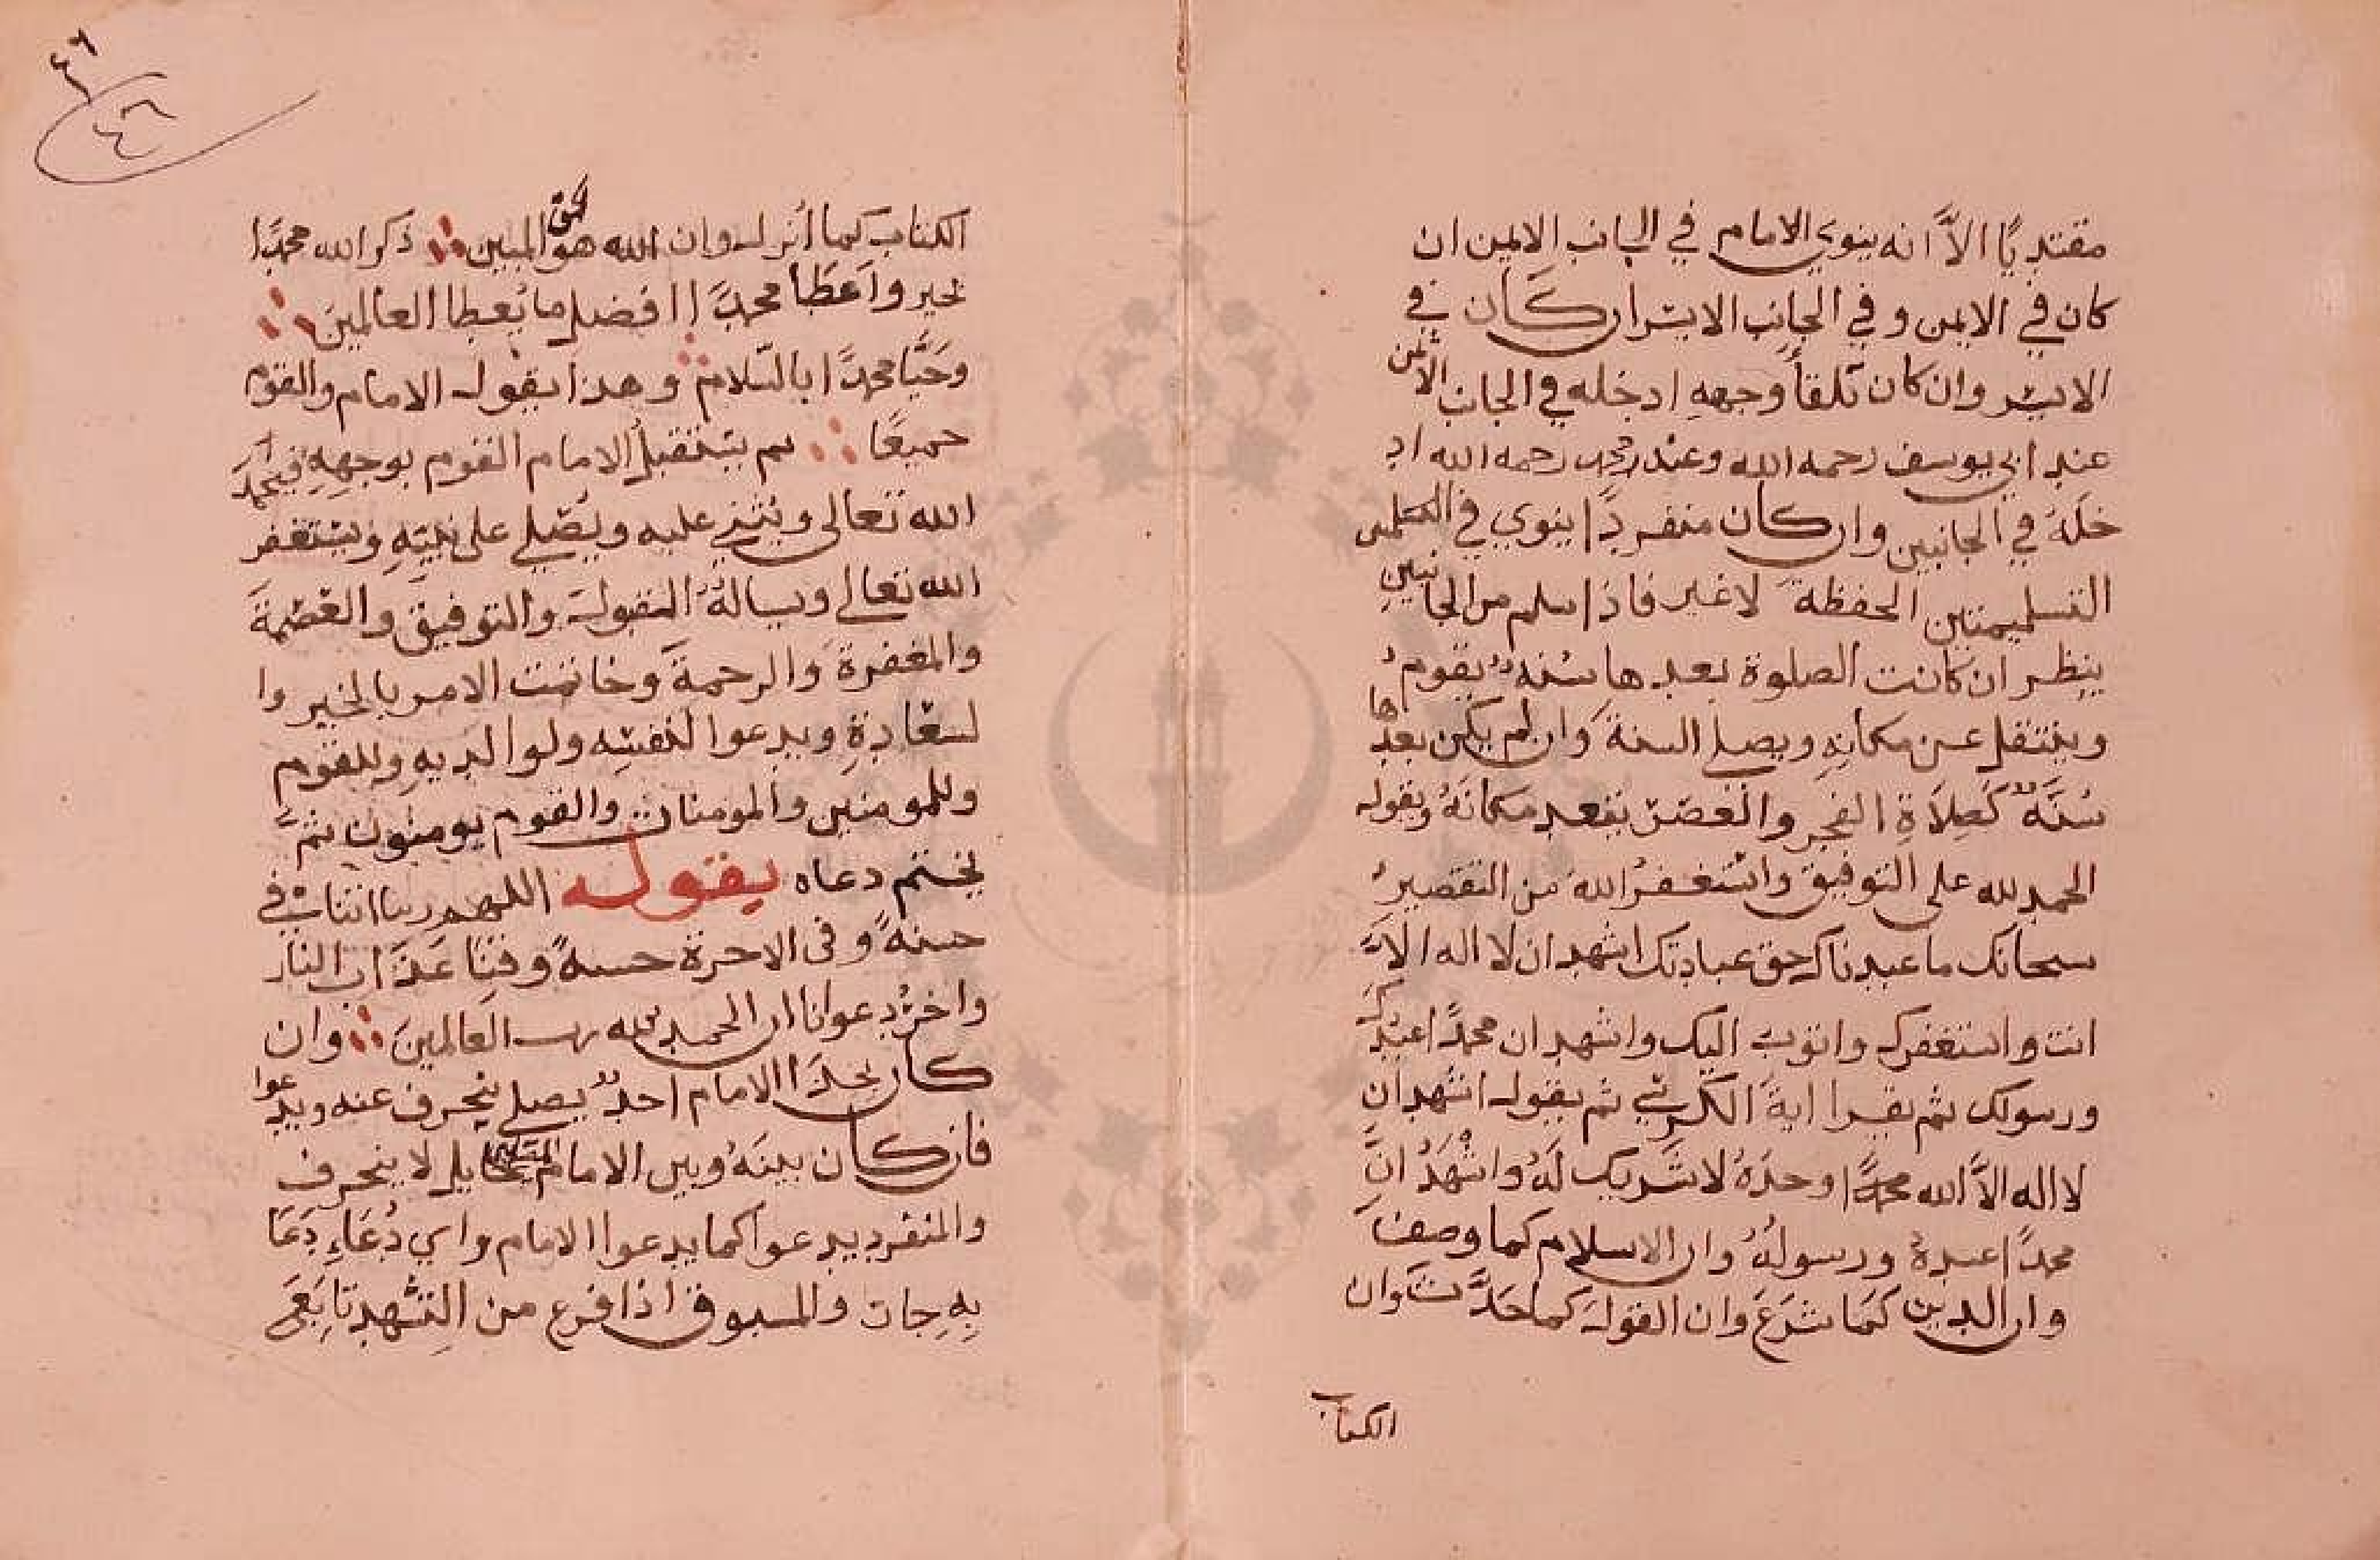 مقتديًا الاّ انه ينوي الامام في الجانب الايمن ان
كان في الايمن وفي الجانب الايسر ان كان في
الايسر وان كان تلقأ وجههِ ادخله في الجانب الايمن
عند ابي يوسف رحمه الله وعند محمد رحمه الله اد
خلَهُ في الجانبين وان كان منفردًا ينوي في
التسليمتين الحفظةَ لاغير فاذا سلم من الجانبينِ
ينظر ان كانت الصلوة بعدها سُنهٌ يقومُ
وينتقل عن مكانهِ ويصلي السنة وان لم يكن بعدها
سُنَّةٌ كَصلاَةِ الفجر والعصرِ يقعد مكانَهُ ويقول
الحمد لله على التوفيق واستغفرُ اللهَ من التقصيرِ
سبحانك ما عبدناك حق عبادتك اشهد ان لا اله الاَّ
انت واستغفرك واتوب اليك واشهد ان محمدًا عبدك
ورسولك ثم يقرا ايةَ الكرسي ثم يقول اشهد ان
لا اله الاَّ الله وحدَهُ لا شَريك لَهُ واشْهَدُ انَّ
محمدًا عبدهُ ورسولُهُ وان الاسلام كما وصفَ
وان الدين كَمَا شَرَعَ وان القولَ كما حَدَّثَ وان
الكتاب
٤٦
٤٦
الكتاب كما أنزل وان الله هو الحق المبين ذكر الله محمدًا
بخير واَعَطَا محمدًا افضل ما يُعطا العالمينَ
وحَيَّا محمدًا بالسّلام وهذا يقول الامام والقوم
جميعًا ثم يستقبل الامام القوم بوجههِ فيحمدُ
الله تعالى ويثني عليه ويُصَلي على نبيّهِ ويستغفر
الله تعالى ويسالهُ القبولَ والتوفيق والعِصْمَةَ
والمغفرةَ والرحمةَ وخاتمت الامر بالخير وا
لسعَادةِ ويدعوا لنفسِه ولوالديهِ وللقوم
وللمومنين والمومنات والقوم يومنون ثمَّ
يختم دعاه يقول اللهم ربنا اتنا في
حسنهً وفى الاخرة حسنهً وقِنَا عَذَابَ النار
واخرُ دعوانا ان الحمد لله رب العالمينَ وان
كان بحِذَا الامام احدٌ يصلي ينحرف عنه ويدعوا
فان كان بينَهُ وبين الامام حايل لا ينحرف
والمنفرد يدعوا كما يدعوا الامام واي دُعَاءٍ دَعَا
بِهِ جاز والمسبوق اذا فرغ من التشهد تابَعَ